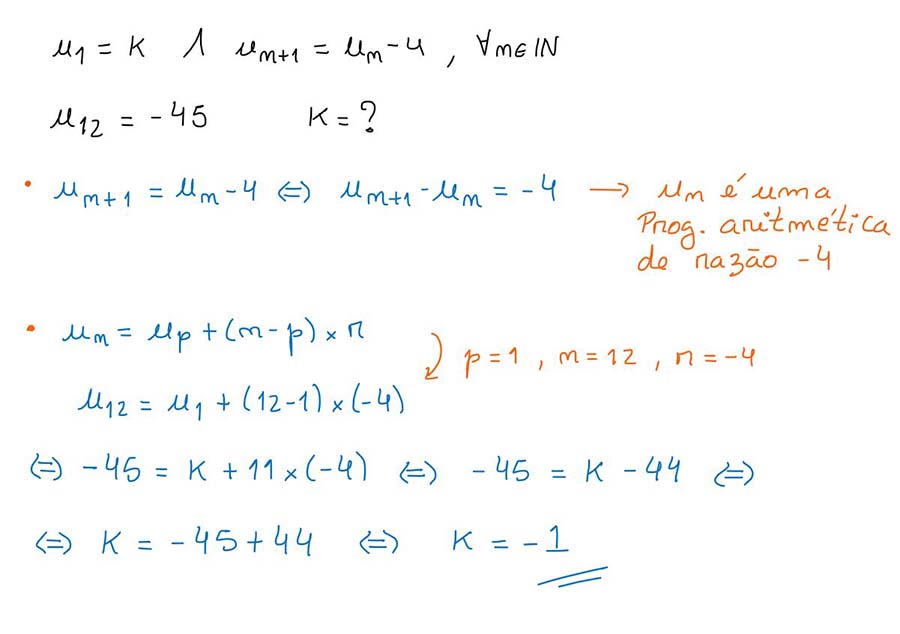 u₁ = K ∧ uₙ₊₁ = uₙ - 4 , ∀n∈ℕ
u₁₂ = -45 K = ?
• uₙ₊₁ = uₙ - 4 ⇔ uₙ₊₁ - uₙ = -4 → uₙ é uma
Prog. aritmética
de razão -4
• uₙ = uₚ + (n-p) × r
p = 1 , n = 12 , r = -4
u₁₂ = u₁ + (12-1) × (-4)
⇔ -45 = K + 11 × (-4) ⇔ -45 = K - 44 ⇔
⇔ K = -45 + 44 ⇔ K = -1